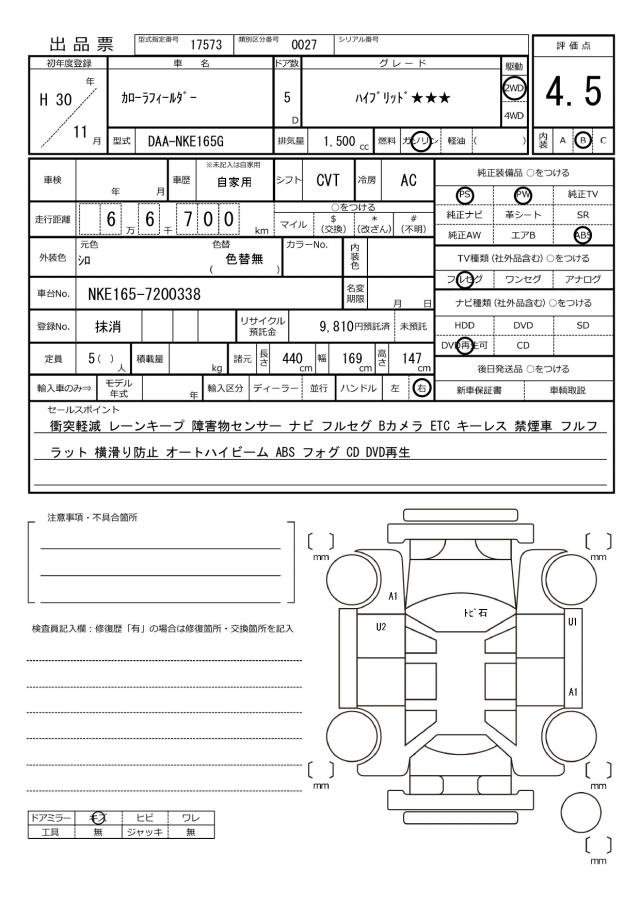 出品票 型式指定番号 17573 類別区分番号 0027 シリアル番号
評価点
4.5
内装 A B C
初年度登録 車名 ドア数 グレード 駆動
H 30 年 11 月
カローラフィールダー 5 D ハイブリッド★★★ 2WD 4WD
型式 DAA-NKE165G 排気量 1.500 cc 燃料 ガソリン 軽油 ( )
車検 年 月 車歴 ※未記入は自家用 自家用 シフト CVT 冷房 AC
走行距離 6 6 万 千 7 0 0 km
○をつける
マイル $(交換) *(改ざん) #(不明)
外装色 元色 シロ 色替 色替無 ( ) カラーNo. 内装色
車台No. NKE165-7200338 名変期限 月 日
登録No. 抹消 リサイクル預託金 9,810円預託済 未預託
定員 5( )人 積載量 kg 諸元 長さ 440cm 幅 169cm 高さ 147cm
輸入車のみ⇒ モデル年式 年 輸入区分 ディーラー 並行 ハンドル 左 右
純正装備品 ○をつける
PS PW 純正TV
純正ナビ 革シート SR
純正AW エアB ABS
TV種類(社外品含む)○をつける
フルセグ ワンセグ アナログ
ナビ種類(社外品含む)○をつける
HDD DVD SD
DVD再生可 CD
後日発送品 ○をつける
新車保証書 車輌取説
セールスポイント
衝突軽減 レーンキープ 障害物センサー ナビ フルセグ Bカメラ ETC キーレス 禁煙車 フルフ
ラット 横滑り防止 オートハイビーム ABS フォグ CD DVD再生
注意事項・不具合箇所
検査員記入欄:修復歴「有」の場合は修復箇所・交換箇所を記入
[ ] mm
[ ] mm
A1
トビ石
U2
U1
A1
[ ] mm
[ ] mm
[ ] mm
ドアミラー キズ ヒビ ワレ
工具 無 ジャッキ 無